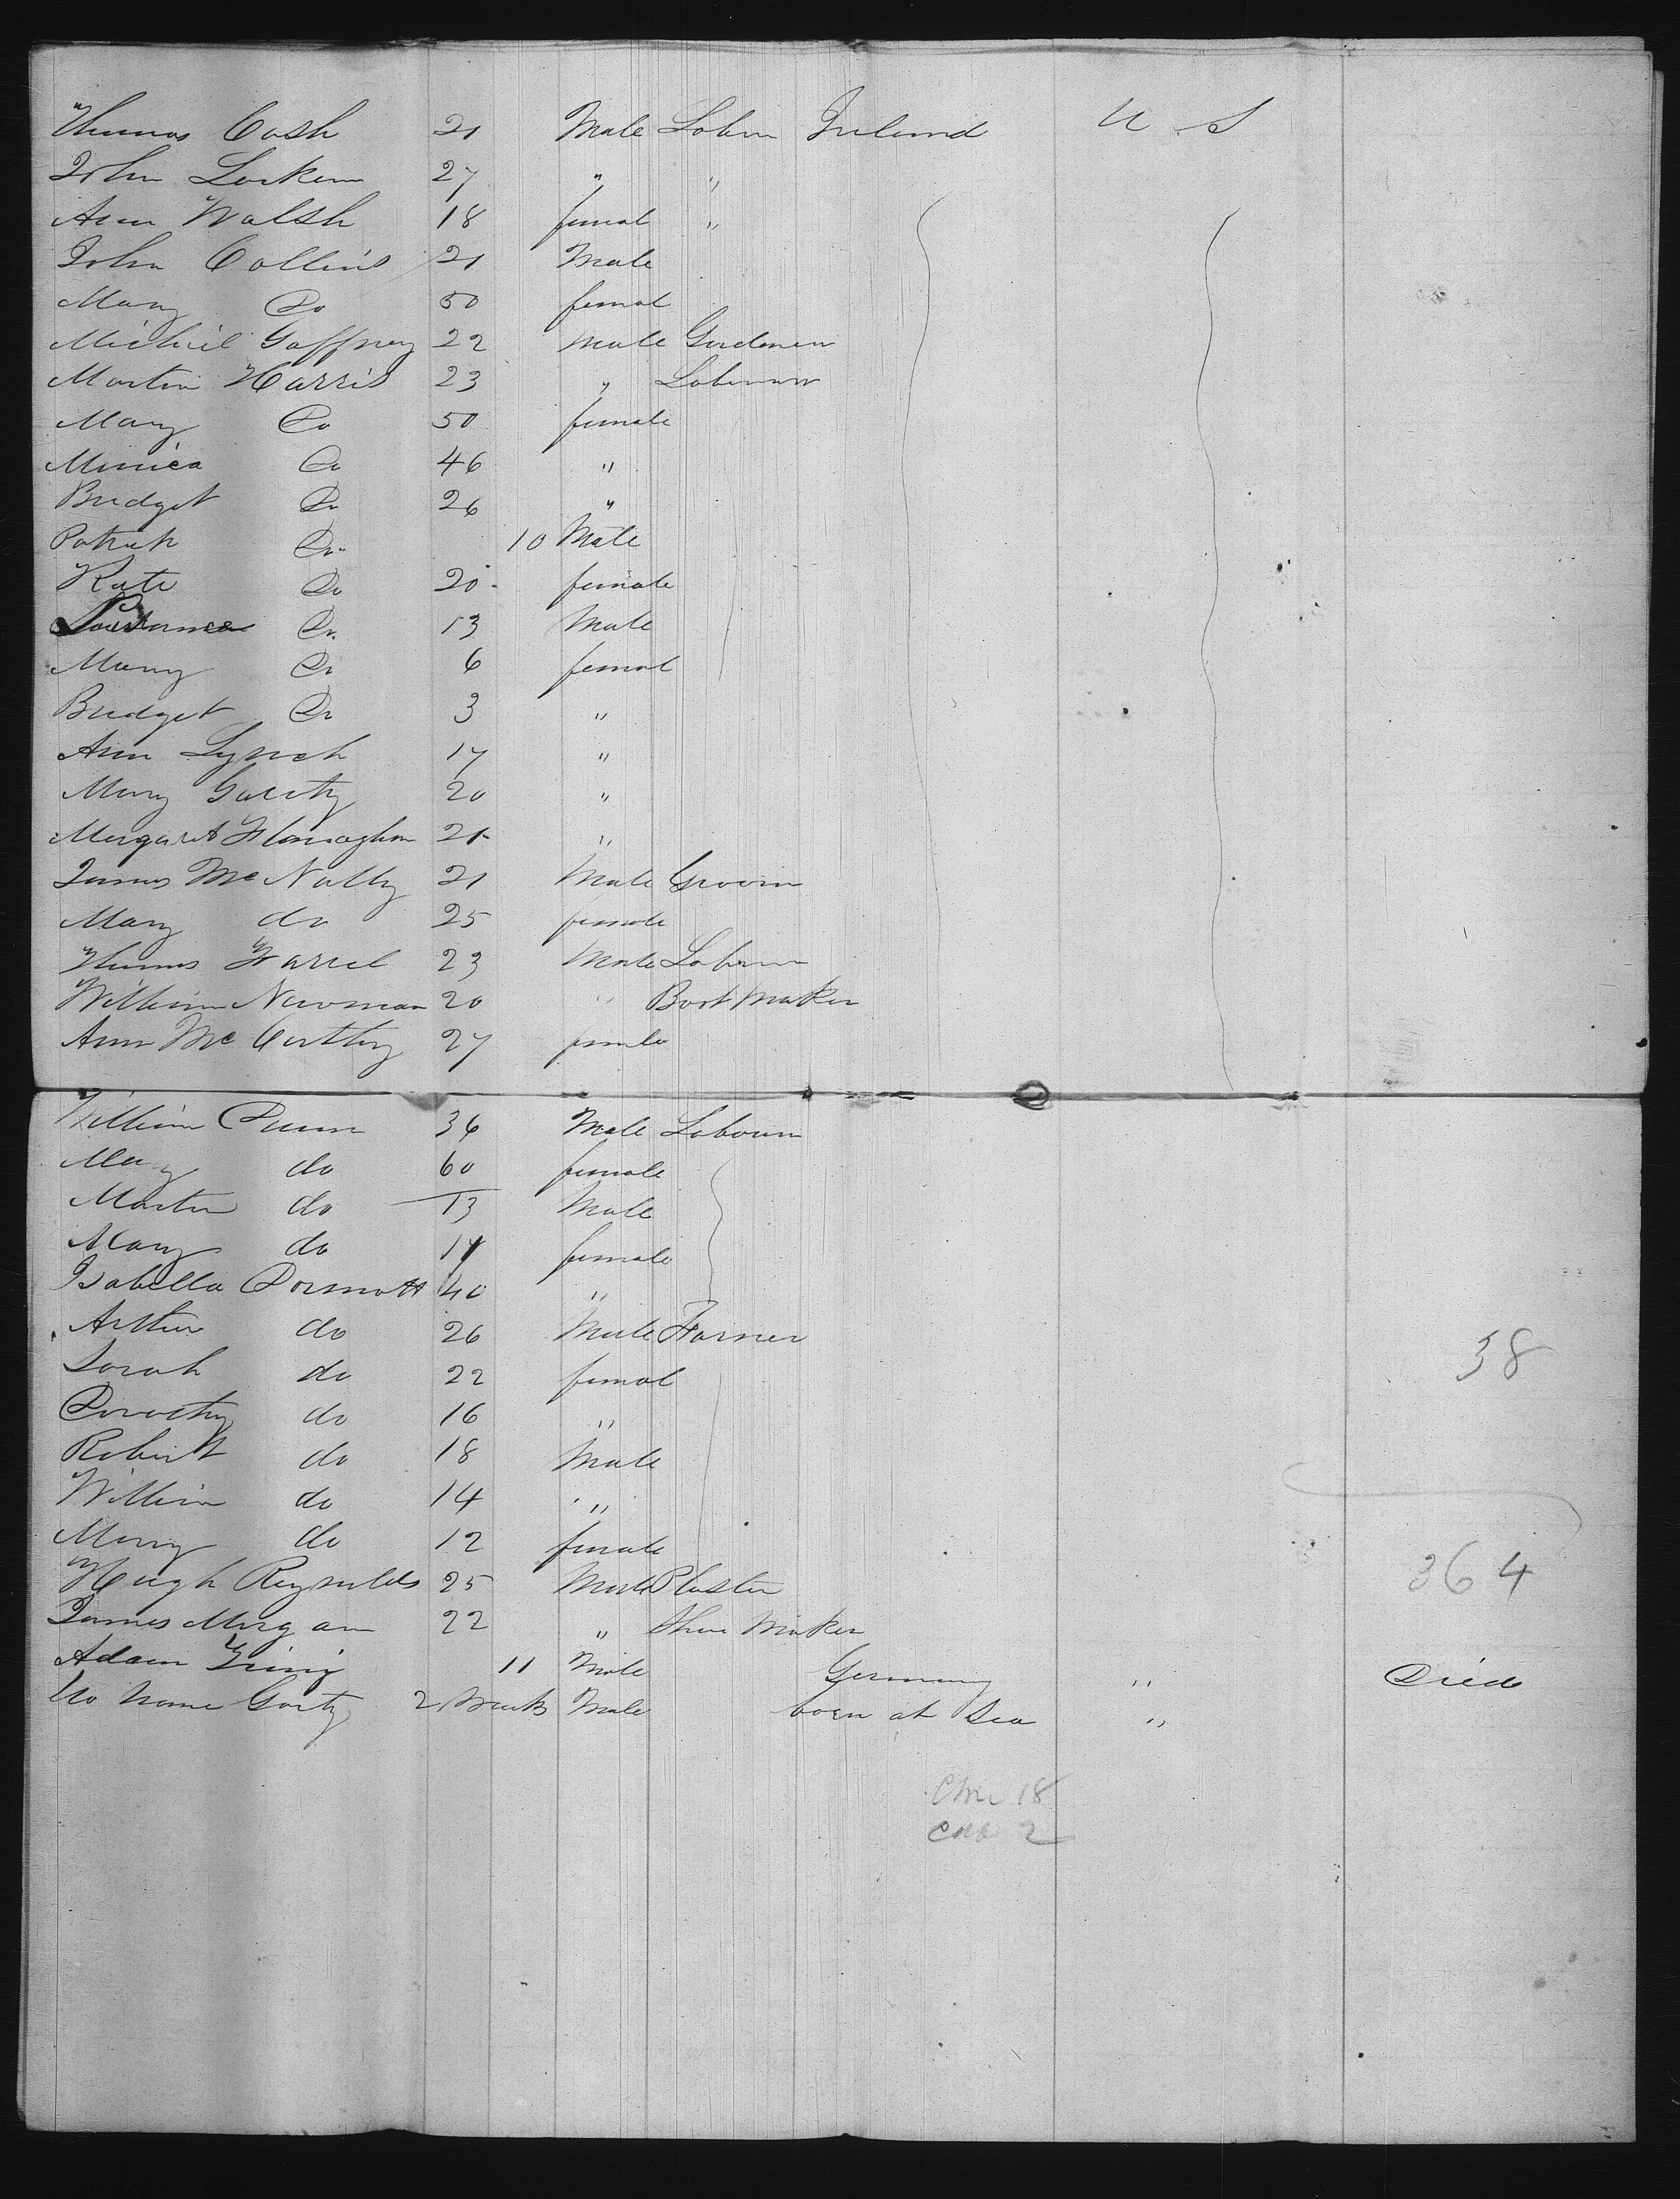 Thomas Cash 21 Male Labour Ireland U S
John Larken 27 " "
Ann Walsh 18 femal "
John Collins 21 Male
Mary Do 50 femal
Michiel Gaffney 22 Male Gardener
Martin Harris 23 " Labourer
Mary Do 50 female
Do 46 "
Bridget Do 26 "
Patrick Do 10 Male
Kate Do 20 female
Do 13 Male
Mary Do 6 femal
Bridget Do 3 "
Ann Lynch 17 "
Mary 20 "
Margaret Flanaghan 21 "
James Mc Nally 21 Male Groom
Mary do 25 female
Thomas Farrel 23 Male Labourer
William Newman 20 " Boot Maker
Ann Mc Carthy 27 female
William Dunn 36 Male Labourer
Mary do 60 female
Martin do 13 Male
Mary do female
Isabella Dormott 40 "
Arthur do 26 Male Farmer
38
Sarah do 22 femal
Dorothy do 16 "
Robert do 18 Male
William do 14 "
Mary do 12 female
Hugh Reynolds 25 Male Plaster
364
James Morgan 22 " Shoe Maker
Adam 11 Male Germany " Died
No Name Garty 2 Weeks Male born at Sea "
18
2